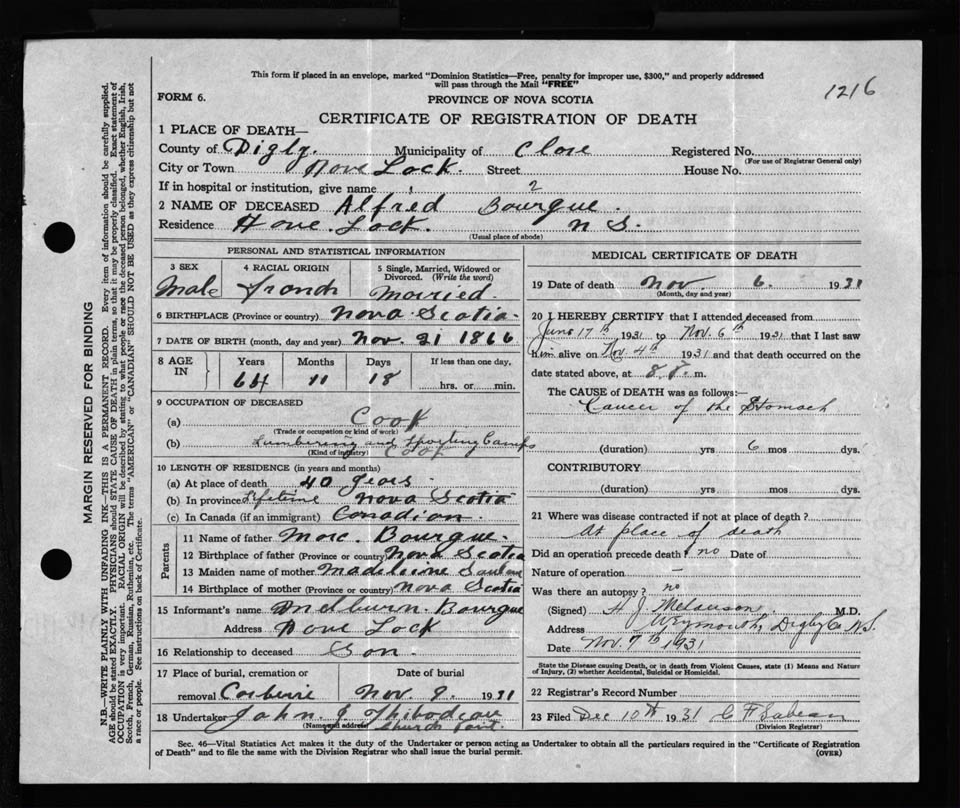 This form if placed in an envelope, marked "Dominion Statistics—Free, penalty for improper use, $300," and properly addressed
will pass through the Mail "FREE"
1216
FORM 6.
PROVINCE OF NOVA SCOTIA
CERTIFICATE OF REGISTRATION OF DEATH
1 PLACE OF DEATH—
County of Digby. Municipality of Clare Registered No.
(For use of Registrar General only)
City or Town Lock. Street House No.
If in hospital or institution, give name
2
2 NAME OF DECEASED Alfred Bourque.
Residence Lock. N S.
(Usual place of abode)
PERSONAL AND STATISTICAL INFORMATION
3 SEX
Male
4 RACIAL ORIGIN
French
5 Single, Married, Widowed or
Divorced. (Write the word)
Married.
6 BIRTHPLACE (Province or country) Nova Scotia.
7 DATE OF BIRTH (month, day and year) Nov. 21 1866
8 AGE IN
Years Months Days If less than one day,
64 11 18 hrs. or min.
9 OCCUPATION OF DECEASED
(a) Cook
(Trade or occupation or kind of work)
(b) Lumbering and Sporting Camps
(Kind of industry) Cook
10 LENGTH OF RESIDENCE (in years and months)
(a) At place of death 40 years
(b) In province Lifetime Nova Scotia
(c) In Canada (if an immigrant) Canadian.
Parents
11 Name of father Marc. Bourque.
12 Birthplace of father (Province or country) Nova Scotia
13 Maiden name of mother Madeleine
14 Birthplace of mother (Province or country) Nova Scotia
15 Informant's name Melburn Bourque
Address Lock
16 Relationship to deceased Son.
17 Place of burial, cremation or Date of burial
removal Corberrie Nov 8. 1931
18 Undertaker John J Thibodeau
(Name and address) Church Point
MEDICAL CERTIFICATE OF DEATH
19 Date of death Nov. 6. 1931
(Month, day and year)
20 I HEREBY CERTIFY that I attended deceased from
June 17th 1931 to Nov. 6th 1931 that I last saw
him alive on Nov. 4th 1931 and that death occurred on the
date stated above, at 8 m.
The CAUSE of DEATH was as follows:
Cancer of the Stomach
(duration) yrs 6 mos dys.
CONTRIBUTORY
(duration) yrs. mos. dys.
21 Where was disease contracted if not at place of death?
At place of death
Did an operation precede death? no Date of
Nature of operation —
Was there an autopsy? no
(Signed) H J Melanson M.D.
Address Weymouth, Digby Co N.S.
Date Nov. 7th 1931
State the Disease causing Death, or in death from Violent Causes, state (1) Means and Nature
of Injury, (2) whether Accidental, Suicidal or Homicidal.
22 Registrar's Record Number
23 Filed Dec 10th 1931 C F Sabean
(Division Registrar)
Sec. 46—Vital Statistics Act makes it the duty of the Undertaker or person acting as Undertaker to obtain all the particulars required in the "Certificate of Registration
of Death" and to file the same with the Division Registrar who shall issue the burial permit.
(OVER)
MARGIN RESERVED FOR BINDING
N.B.—WRITE PLAINLY WITH UNFADING INK—THIS IS A PERMANENT RECORD. Every item of information should be carefully supplied.
AGE should be stated EXACTLY. PHYSICIANS should STATE CAUSE OF DEATH in plain terms, so that it may be properly classified. Exact statement of
OCCUPATION is very important. RACIAL ORIGIN will be described by stating to what people or race the deceased person belonged, whether English, Irish,
Scotch, French, German, Russian, Ruthenian, etc. The terms "AMERICAN" or "CANADIAN" SHOULD NOT BE USED as they express citizenship but not
a race or people. See instructions on back of Certificate.